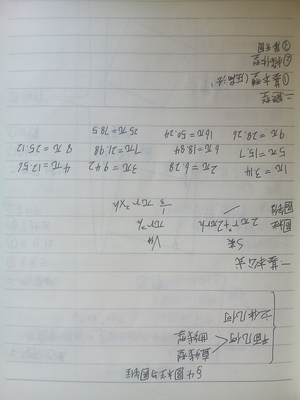 §4 圆柱与圆锥
直线型
平面几何
曲线型
立体几何
一.基本公式
S表 V体
圆柱 2πr²+2πrh πr²h
圆锥 / 1/3πr²×h
1π=3.14 2π=6.28 3π=9.42 4π=12.56
5π=15.7 6π=18.84 7π=21.98 8π=25.12
9π=28.26 16π=50.24 25π=78.5
二.题型
①基本型
②
③